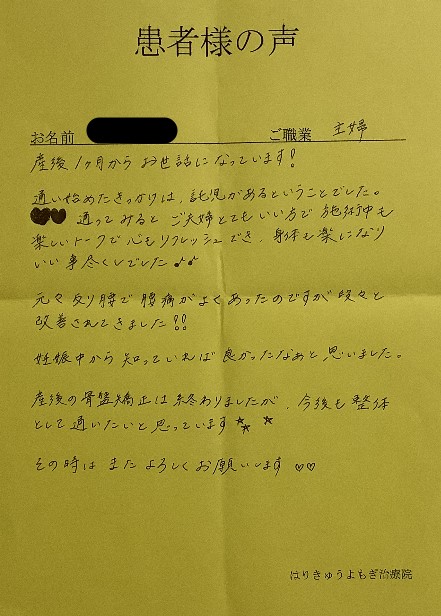 患者様の声
お名前 ご職業 主婦
産後1ヶ月からお世話になっています!
通い始めたきっかけは、託児があるということでした。
♥♥通ってみるとご夫婦とてもいい方で施術中も
楽しいトークで心もリフレッシュでき、身体も楽になり
いい事尽くしでした♪♪
元々反り腰で腰痛がよくあったのですが段々と
改善されてきました!!
妊娠中から知っていれば良かったなぁと思いました。
産後の骨盤矯正は終わりましたが、今後も整体
として通いたいと思っています☆☆☆
その時はまたよろしくお願いします♡♡
はりきゅうよもぎ治療院